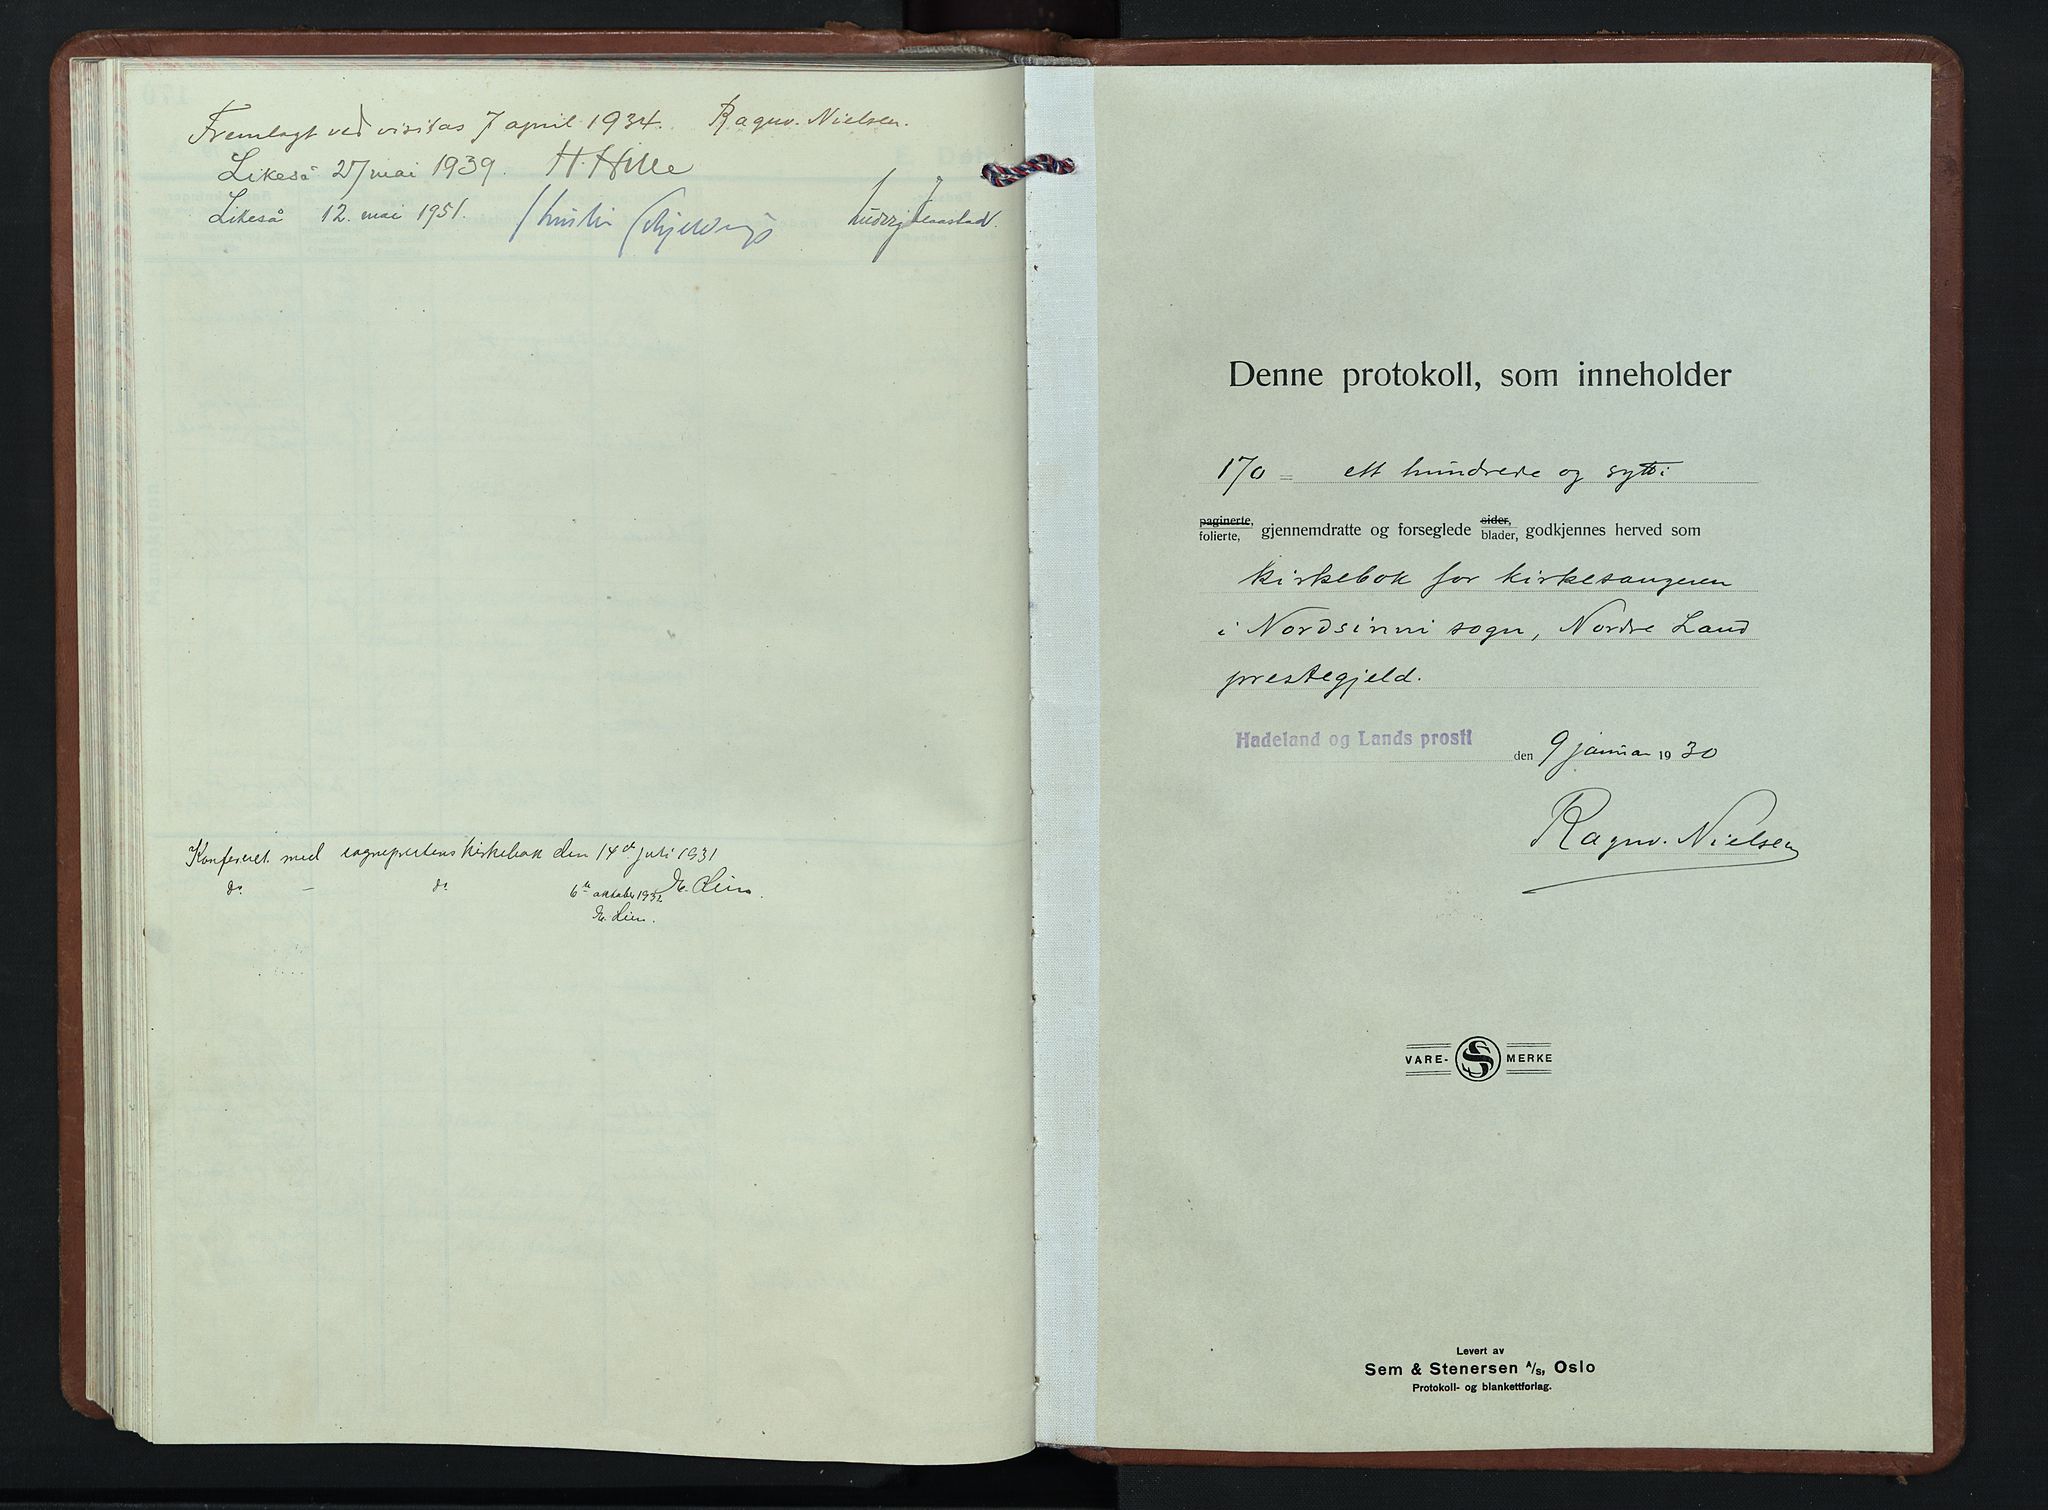 Fremlagt ved visitas 7 april 1934. Ragnv. Nielsen.
Likeså 27 mai 1939. H. Hille
Likeså 12. mai 1951. Schjelderup
Konfereret med sogneprestens kirkebok den 14de juli 1931
do — do 6te oktober 1932
Denne protokoll, som inneholder
170 = ett hundrede og sytti
paginerte, folierte, gjennemdratte og forseglede sider, blader, godkjennes herved som
kirkebok for kirkesangeren
i Nordsinni sogn, Nordre Land
prestegjeld.
Hadeland og Lands prosti den 9 januar 1930
Ragnv. Nielsen
VARE- SS MERKE
Levert av
Sem & Stenersen A/S, Oslo
Protokoll- og blankettforlag.